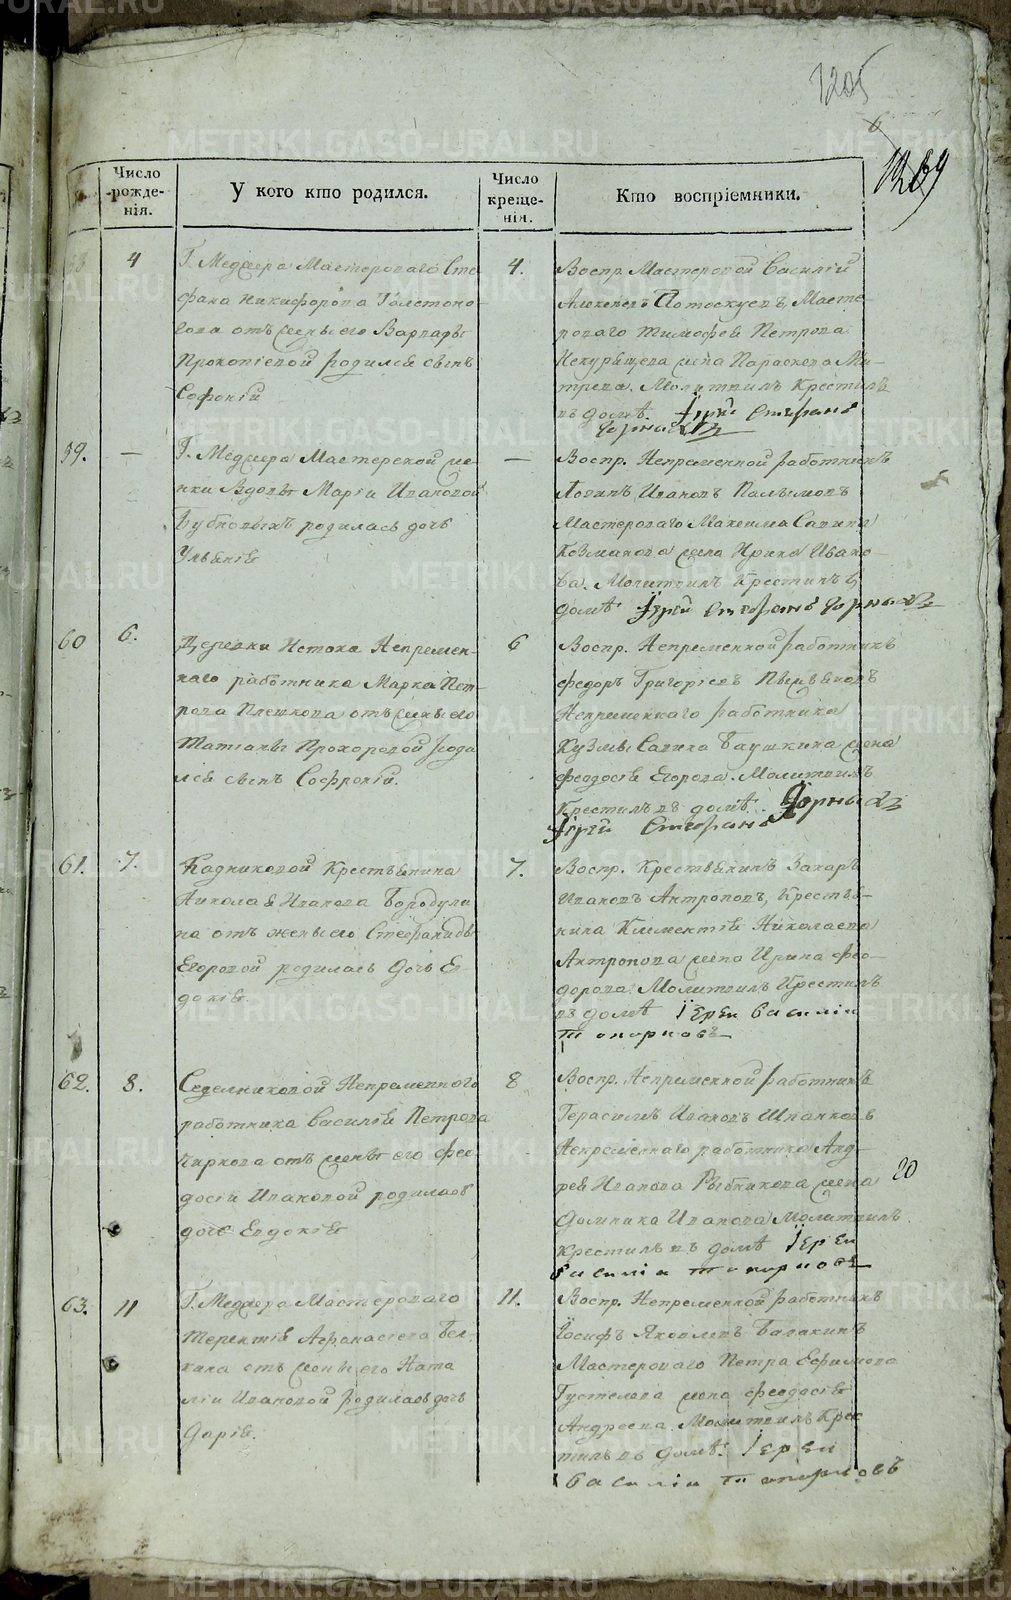 1205
6
1269
Число рожденія.
У кого кто родился.
Число крещенія.
Кто воспріемники.
4
Г. Медж
ера Мастероваго Сте
фана Никифорова Толстоно
гова отъ жены его Варвары
Прокопіевой родился сынъ
Софоній
4.
Воспр. Мастеровой Василій
Алексѣевъ Потоскуевъ, Масте-
роваго Тимофея Петрова
жена Параскева Ми-
трева. Молитвилъ Крестилъ
въ домѣ. Іерей Стефанъ
Черныхъ
59.
—
Мастерской же-
нки Вдовы Маріи Ивановой
Бубновыхъ родилась дочь
Уліанія
—
Воспр. Непременной работникъ
Логинъ Ивановъ Палымовъ
Мастероваго Максима Савина
Козманова жена Ирина Ивано-
ва. Молитвилъ Крестилъ въ
домѣ Іерей Стефанъ Черныхъ
60
6.
Деревни Истока Непремен-
наго работника Марка Пет-
рова Плешкова отъ жены его
Татіаны Прохоровой роди
лся сынъ Софроній.
6
Воспр. Непременной работникъ
Федоръ Григорьевъ
Непременнаго работника
Кузмы Савина Баушкина жена
Феодосія Егорова. Молитвилъ
Крестилъ въ домѣ. Черныхъ
Іерей Стефанъ
61.
7.
Кадниковой Крестьянина
Николая Иванова Бородули
на отъ жены его Стефаниды
Егоровой родилась дочь Ев-
докія.
7.
Воспр. Крестьянинъ Захаръ
Ивановъ Антроповъ, Крестья-
нина Климентія Николаева
Антропова жена Ирина Фео-
дорова. Молитвилъ Крестилъ
въ домѣ Іерей Василій
Топорковъ
62.
8.
Седелниковой Непременного
работника Василія Петрова
Чиркова отъ жены его Фео-
досіи Ивановой родилась
дочь Евдокія
8
Воспр. Непременной работникъ
Герасимъ Ивановъ
Непременнаго работника Анд-
рея Иванова Рыбникова жена
Домника Иванова Молитвилъ
Крестилъ въ домѣ Іерей
Василій Топорковъ
20
63.
11
Мастероваго
Терентія Афанасіева Бел-
кина отъ жены его Ната
ліи Ивановой родилась дочь
Дарія.
11.
Воспр. Непременной работникъ
Іосифъ Яковлевъ Балакинъ
Мастероваго Петра Ефимова
жена Феодосія
Андреева. Молитвилъ Крес
тилъ въ домѣ. Іерей
Василій Топорковъ
METRIKI.GASO-URAL.RU